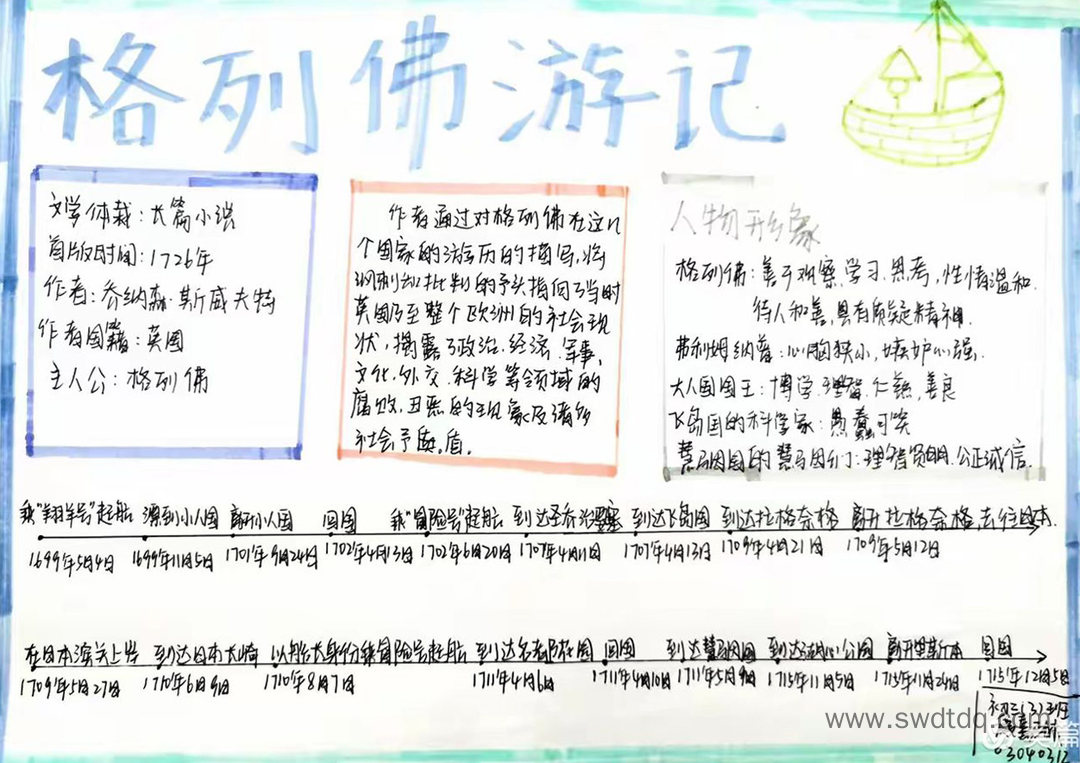 格列佛游记
文学体裁：长篇小说
首版时间：1726年
作者：乔纳森·斯威夫特
作者国籍：英国
主人公：格列佛
作者通过对格列佛在这几
个国家的游历的描写，将
讽刺和批判的矛头指向了当时
英国乃至整个欧洲的社会现
状，揭露了政治、经济、军事、
文化、外交、科学等领域的
腐败，丑恶的现象及诸多
社会矛盾。
人物形象
格列佛：善于观察，学习，思考，性情温和，
待人和善，具有质疑精神。
弗利姆纳普：心胸狭小，嫉妒心强.
大人国国王：博学，理智，仁慈，善良
飞岛国的科学家：愚蠢可笑
慧马因国的慧马因们：理智贤明，公正诚信.
乘"羚羊号"起航 漂到小人国 离开小人国 回国 乘"冒险号"起航 到达圣乔治 到达飞岛国 到达拉格奈格 离开拉格奈格,去往日本.
1699年5月4日 1699年11月5日 1701年9月24日 1702年4月13日 1702年6月20日 1707年4月11日 1707年4月13日 1709年4月21日 1709年5月12日
在日本滨关上岸 到达日本长崎 以船长身份乘冒险号起航 到达名 回国 到达慧马因国 到达 离开里斯本 回国
1709年5月27日 1710年6月9日 1710年8月7日 1711年4月6日 1711年4月10日 1711年5月9日 1715年11月5日 1715年11月24日 1715年12月5日
初二(3)班
03040312
www.swdtdq.com
美篇